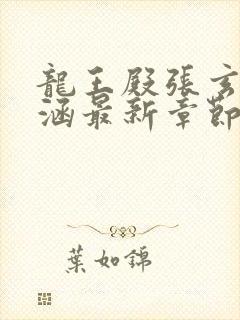 龍王殿張玄
涵最新章節
葉如錦